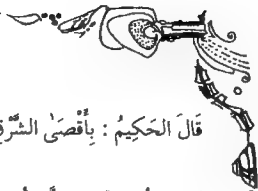 قَالَ الحَكِيمُ : بِأَقْصَى الشَّرْقِ